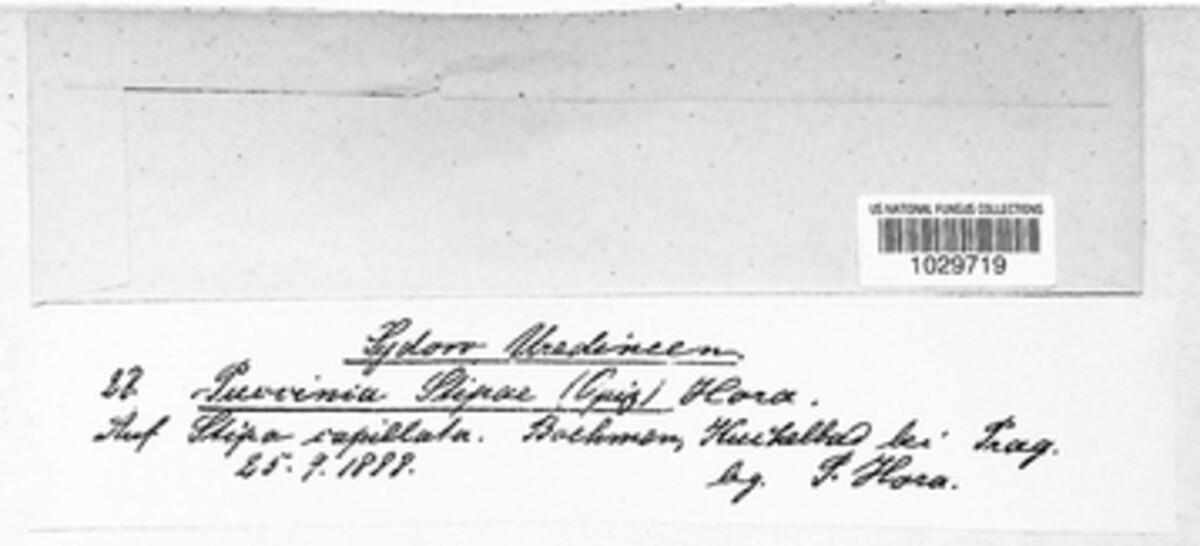 US NATIONAL FUNGUS COLLECTIONS
1029719
Sydow Uredineen.
27. Puccinia Stipae (Opiz) Hora.
Auf Stipa capillata. Boehmen, Kuchelbad bei Prag.
25. 9. 1888. leg. P. Hora.